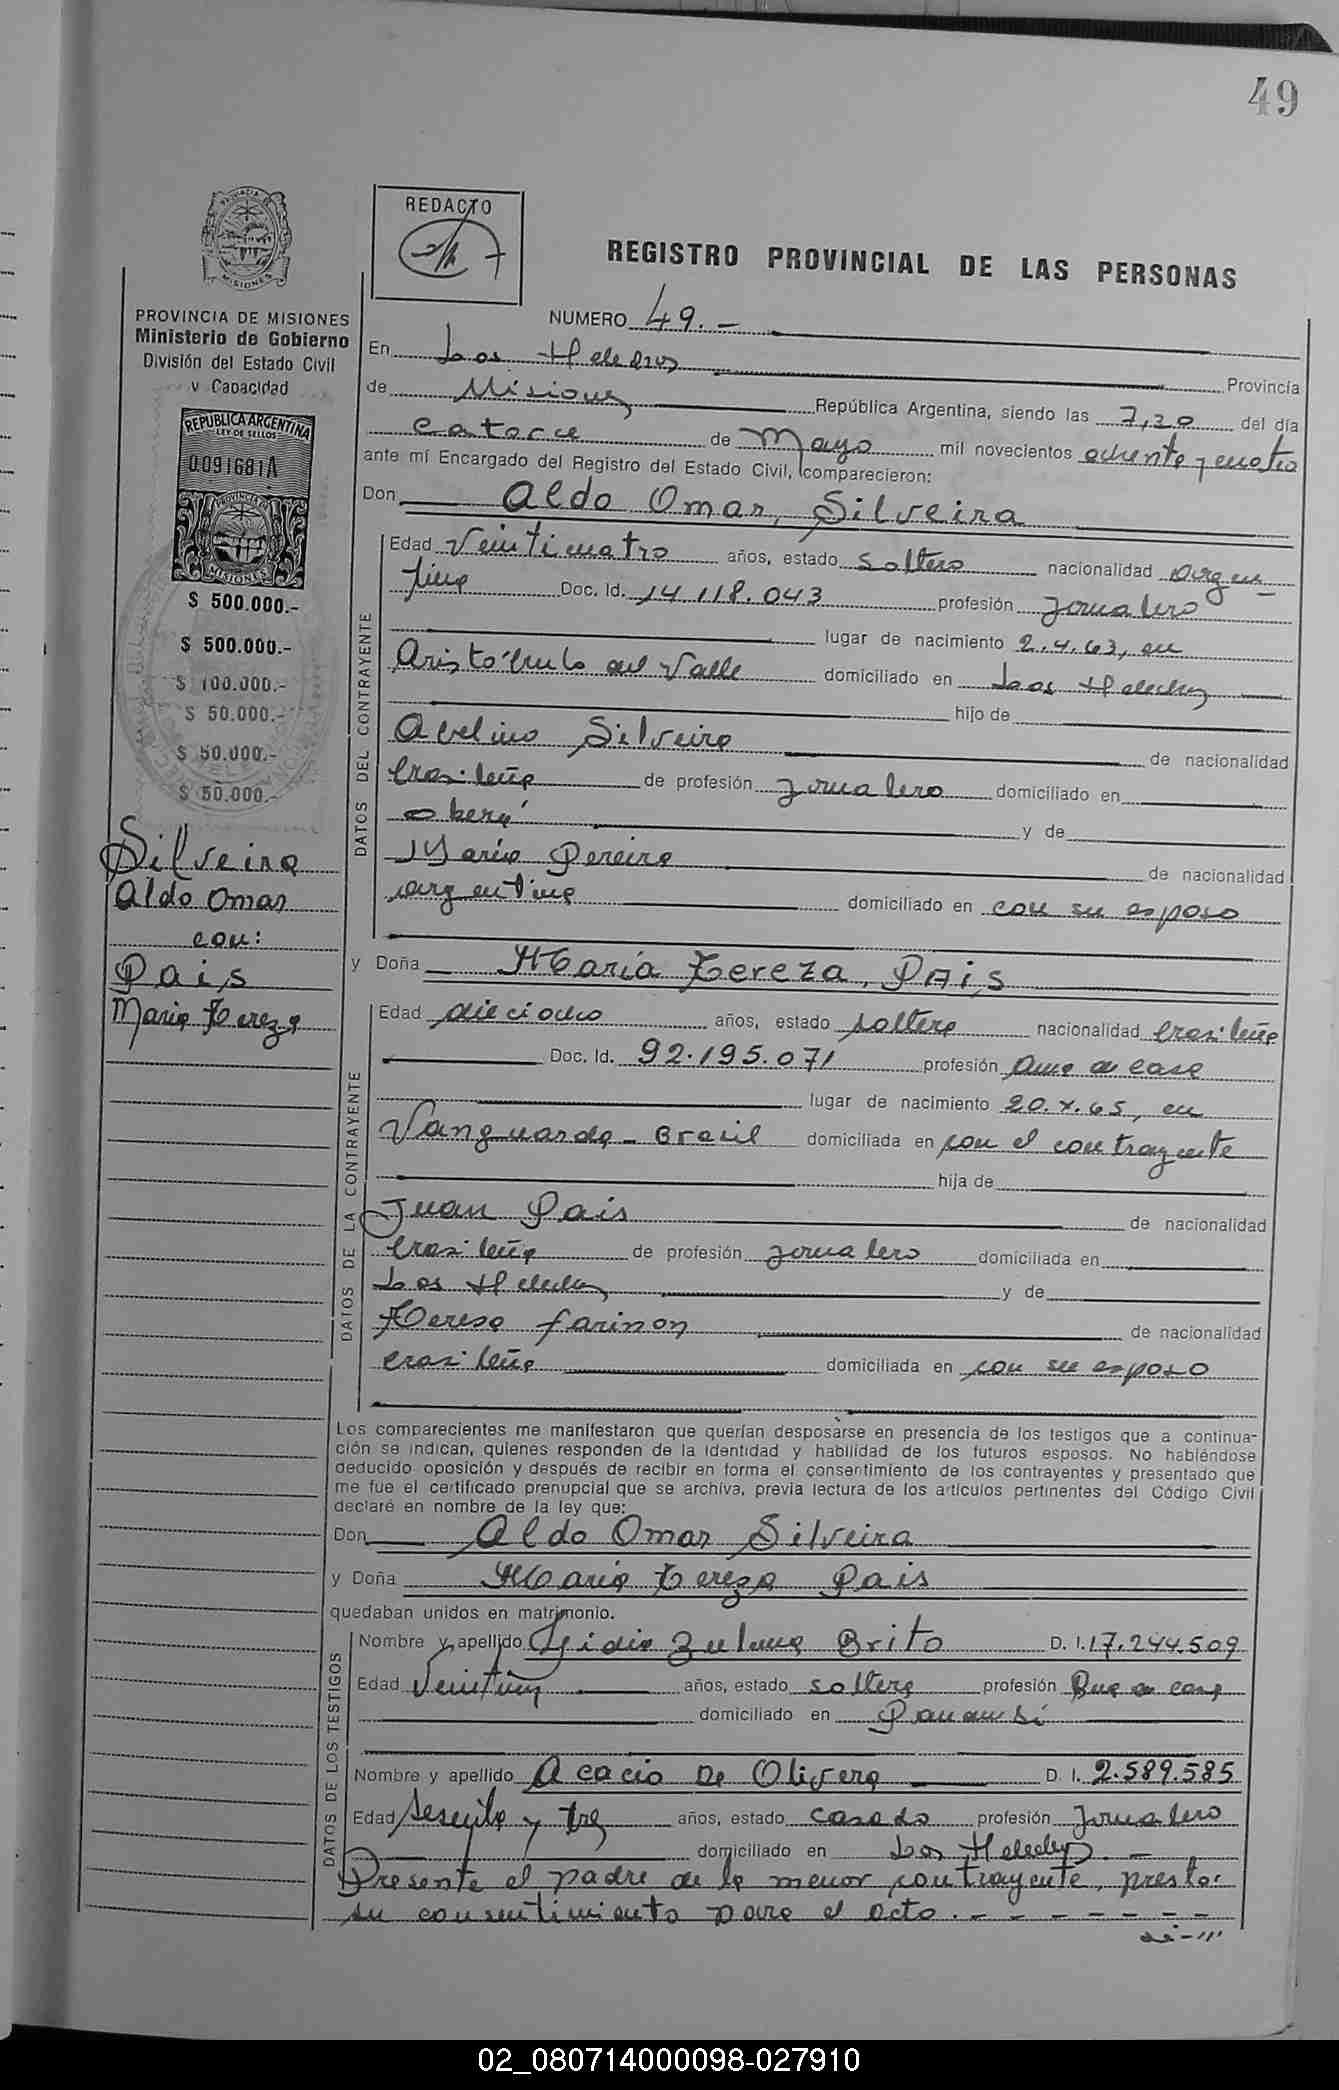 49
REDACTO
REGISTRO PROVINCIAL DE LAS PERSONAS
PROVINCIA DE MISIONES
Ministerio de Gobierno
División del Estado Civil
y Capacidad
REPUBLICA ARGENTINA
LEY DE SELLOS
0091681A
PROVINCIA DE
MISIONES
$ 500.000.-
$ 500.000.-
$ 100.000.-
$ 50.000.-
$ 50.000.-
$ 50.000.-
Silveira
Aldo Omar
con:
Pais
Maria Tereza
NUMERO 49.-
En Los Helechos Provincia
de Misiones República Argentina, siendo las 7,30 del día
catorce de Mayo mil novecientos ochenta y cuatro
ante mí Encargado del Registro del Estado Civil, comparecieron:
Don Aldo Omar, Silveira
DATOS DEL CONTRAYENTE
Edad Veinticuatro años, estado soltero nacionalidad argen-
tina Doc. Id. 14.118.043 profesión Jornalero
lugar de nacimiento 2.4.63, en
Aristóbulo del Valle domiciliado en Los Helechos
hijo de
Avelino Silveira de nacionalidad
brasileña de profesión Jornalero domiciliado en
Oberá y de
Maria Pereira de nacionalidad
argentina domiciliado en con su esposo
y Doña María Tereza, PAis
DATOS DE LA CONTRAYENTE
Edad dieciocho años, estado soltera nacionalidad brasileña
Doc. Id. 92.195.071 profesión Ama de casa
lugar de nacimiento 20.X.65, en
Vanguarda - Brasil domiciliada en con el contrayente
hija de
Juan Pais de nacionalidad
brasileña de profesión Jornalero domiciliada en
Los Helechos y de
Teresa Farinon de nacionalidad
brasileña domiciliada en con su esposo
Los comparecientes me manifestaron que querían desposarse en presencia de los testigos que a continua-
ción se indican, quienes responden de la identidad y habilidad de los futuros esposos. No habiéndose
deducido oposición y después de recibir en forma el consentimiento de los contrayentes y presentado que
me fue el certificado prenupcial que se archiva, previa lectura de los artículos pertinentes del Código Civil
declaré en nombre de la ley que:
Don Aldo Omar Silveira
y Doña Maria Tereza Pais
quedaban unidos en matrimonio.
DATOS DE LOS TESTIGOS
Nombre y apellido Lidia Zulema Brito D. I. 17.244.509
Edad Veintiún años, estado soltera profesión Ama de casa
domiciliado en Panambí
Nombre y apellido Acacio De Olivera D. I. 2.589.585
Edad Sesenta y tres años, estado casado profesión Jornalero
domiciliado en Los Helechos. -
Presente el padre de la menor contrayente, presta
su consentimiento para el acto. - - - - - - -
02_080714000098-027910